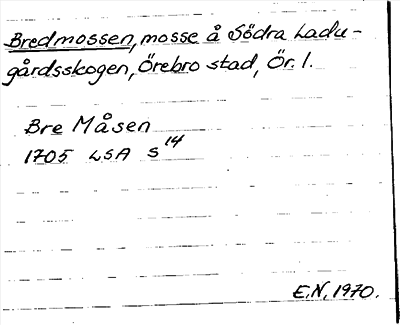 Bredmossen, mosse å Södra Ladu-
gårdsskogen, Örebro stad, Ör. l.
Bre Måsen
1705 LSA S14
E.N. 1970.